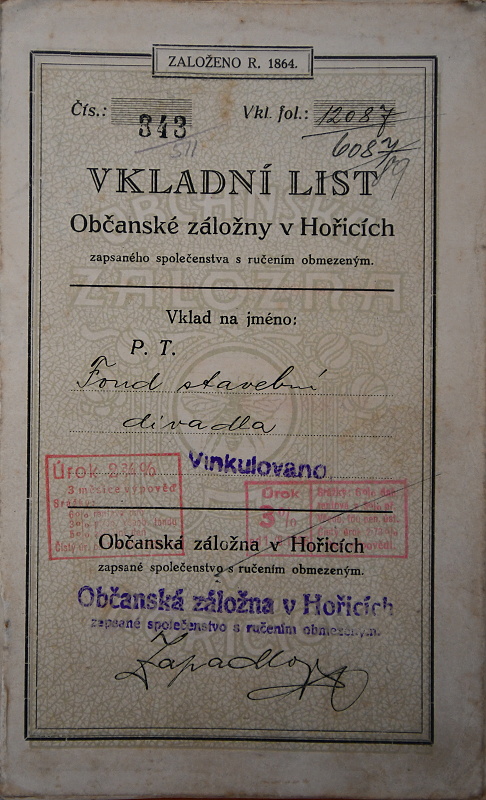 ZALOŽENO R. 1864.
Čís.: 343 Vkl. fol.: 12087
511 6087/19
VKLADNÍ LIST
Občanské záložny v Hořicích
zapsaného společenstva s ručením obmezeným.
Vklad na jméno:
P. T.
Fond stavební
divadla
Vinkulováno
Úrok 2¾%
3 měsíce výpověď
Úrok
3%
Občanská záložna v Hořicích
zapsané společenstvo s ručením obmezeným.
Občanská záložna v Hořicích
zapsané společenstvo s ručením obmezeným.